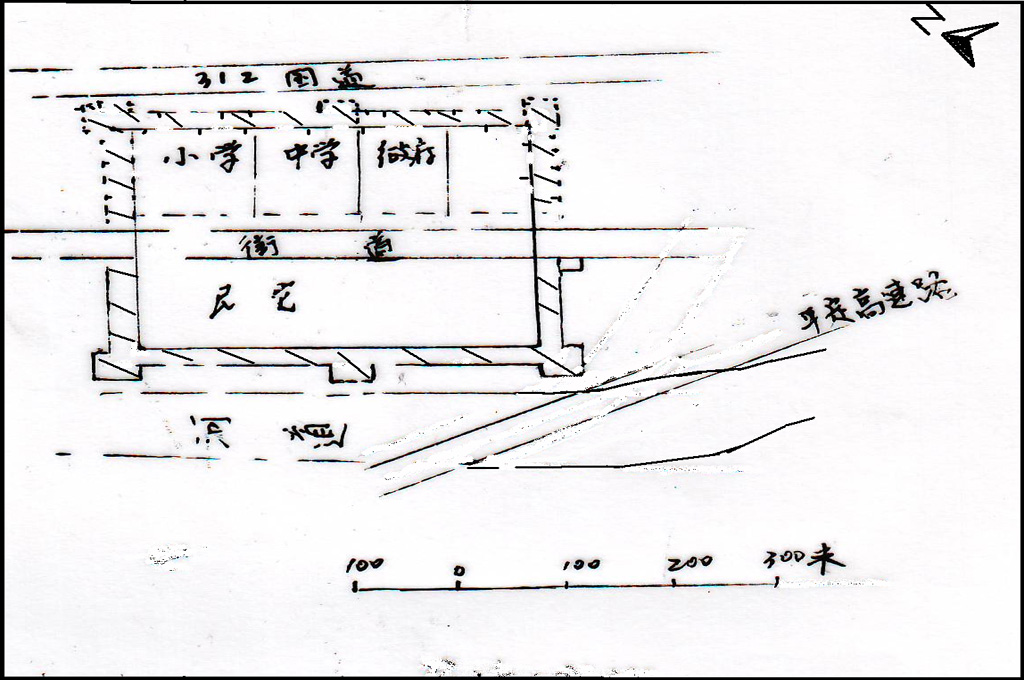 N
312 国道
小学 中学 政府
街道
民宅
平定高速路
河道
100 0 100 200 300米